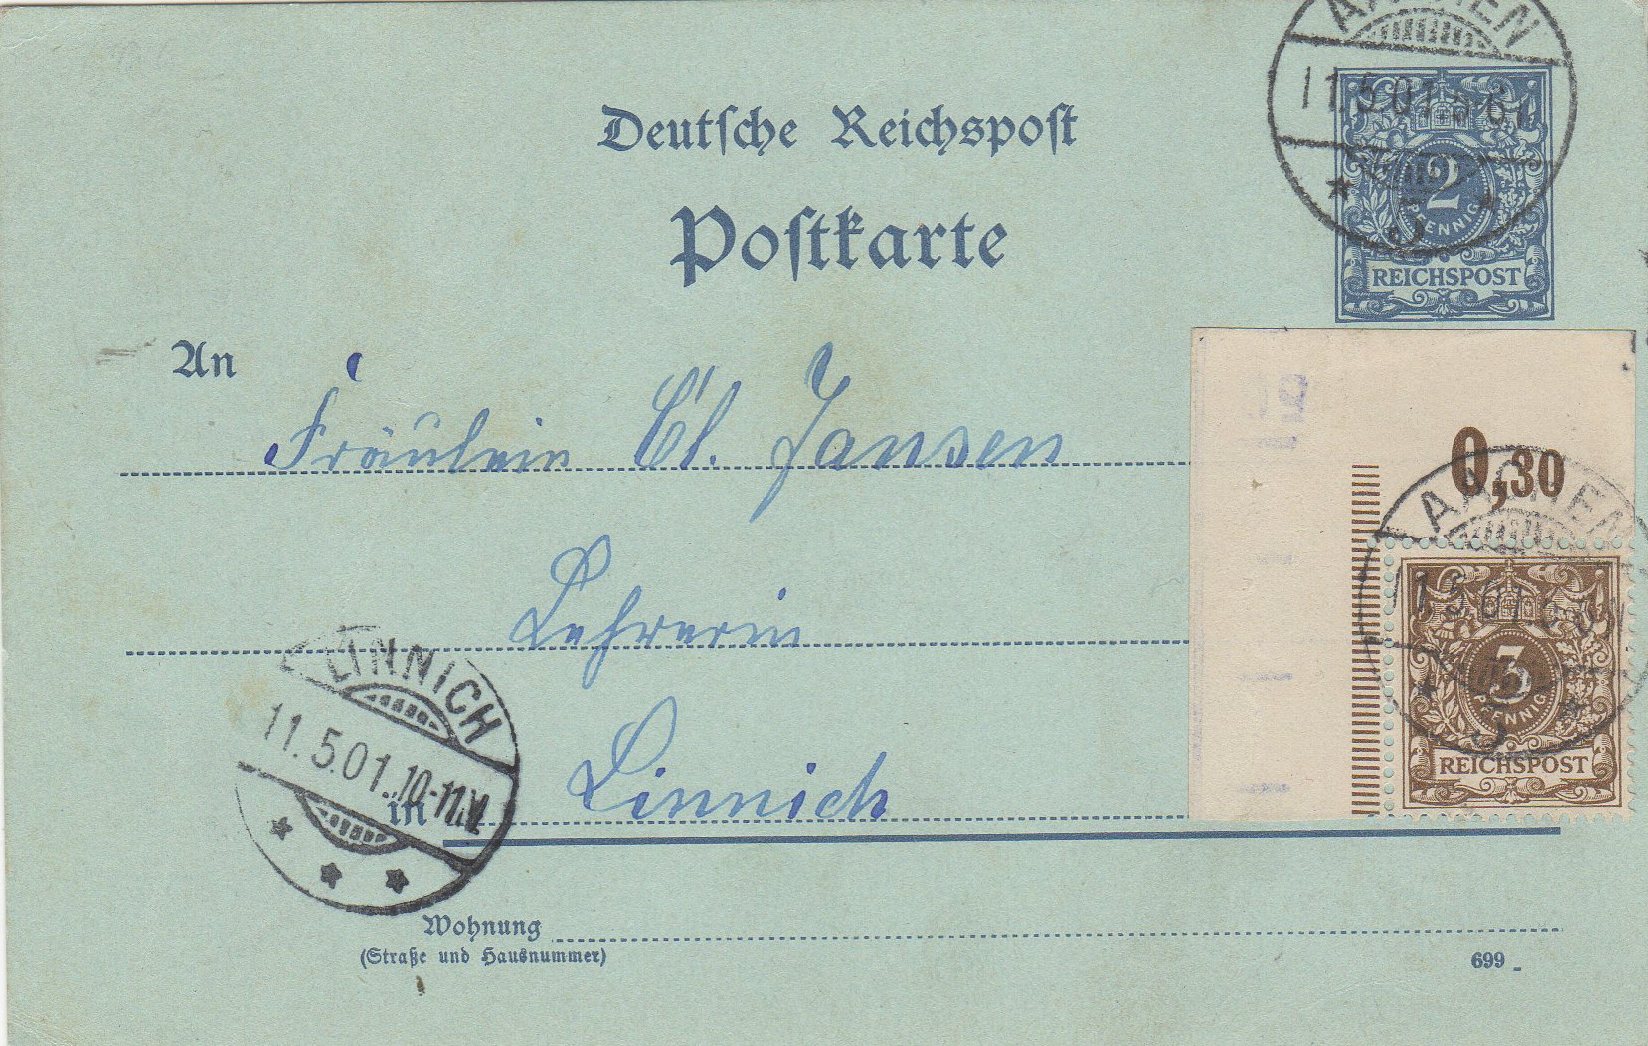 AACHEN
11.5.01.5-6V.
2
PFENNIG
REICHSPOST
Deutsche Reichspost
Postkarte
An
Fräulein El. Jansen
0,30
AACHEN
11.5.01.
3
PFENNIG
REICHSPOST
Lehrerin
LINNICH
11.5.01.10-11.V.
in Linnich
Wohnung
(Straße und Hausnummer)
699